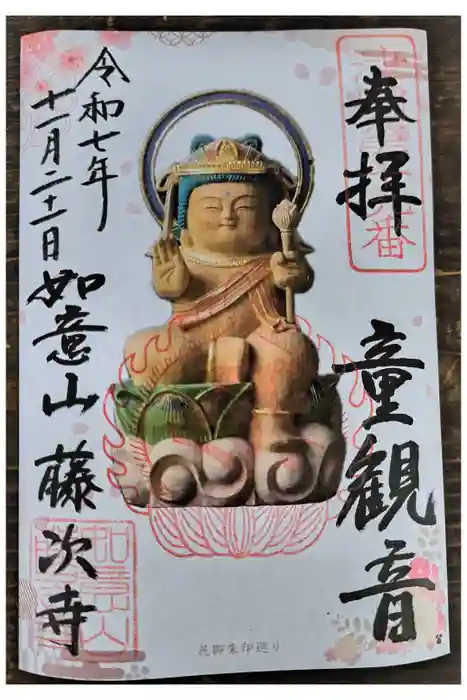 奉拝
童観音
令和七年
十一月二十一日
如意山 藤次寺
花御朱印巡り